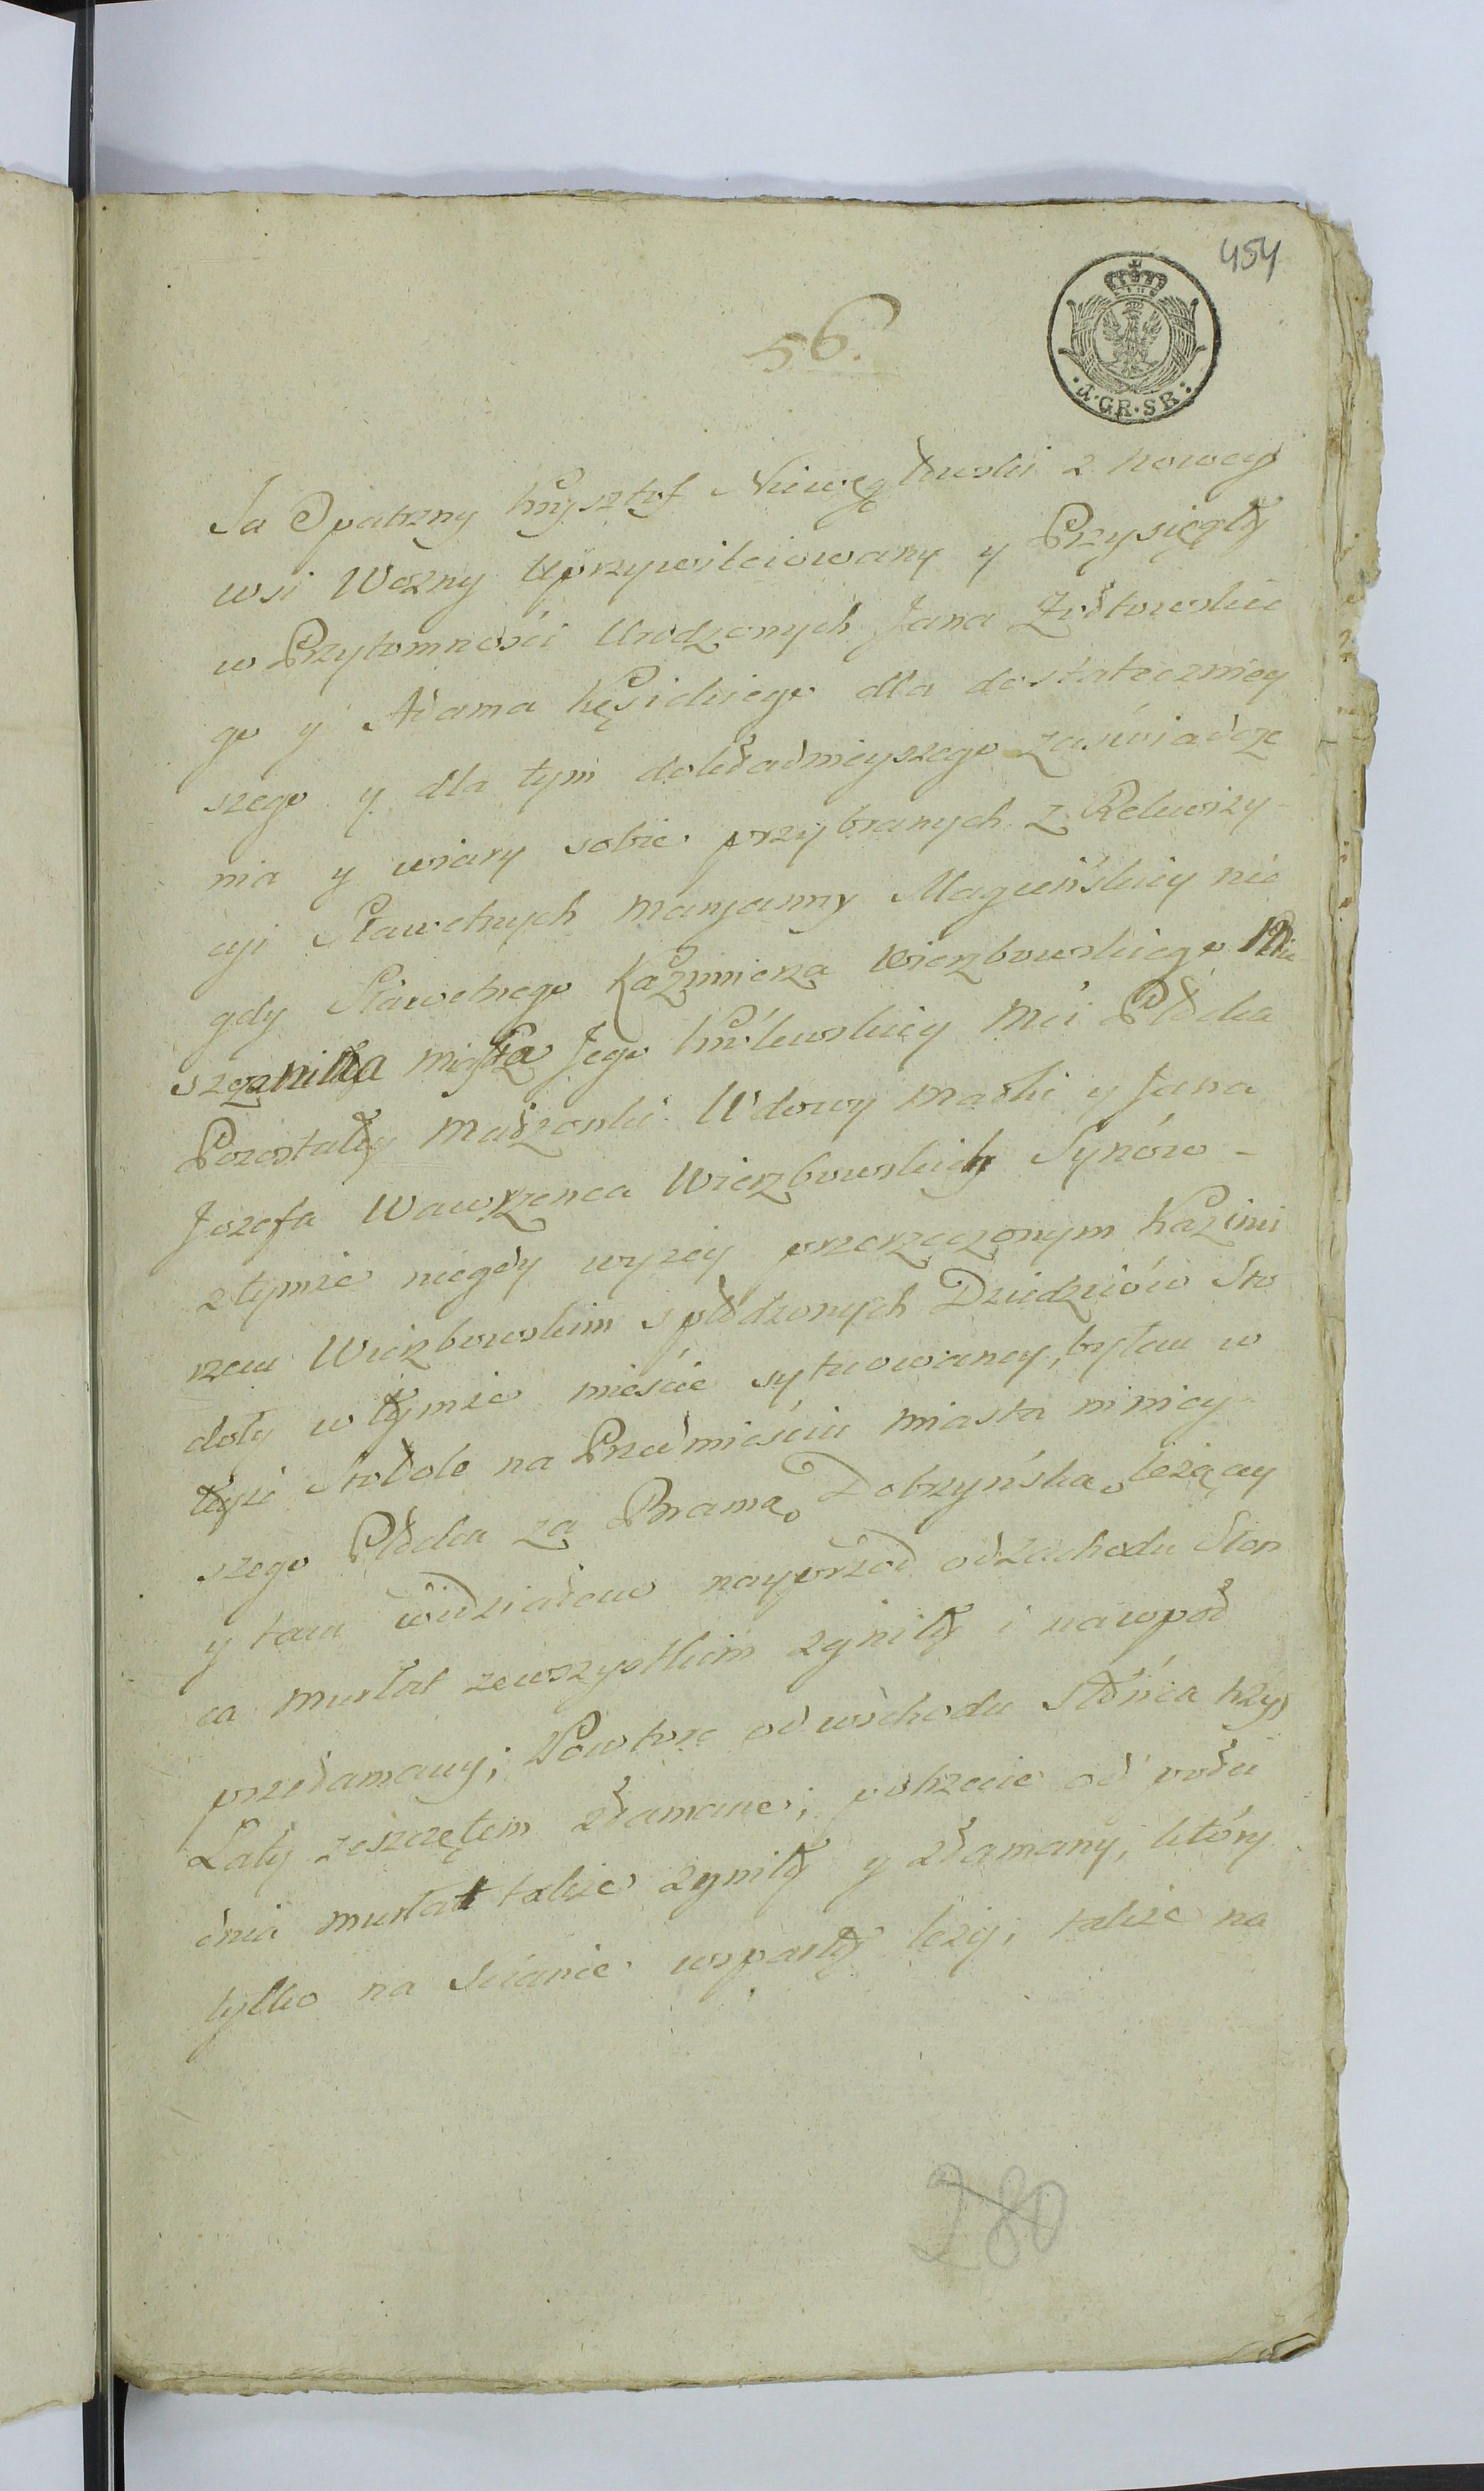 454
56.
4.GR.SR:
Ja Opatrzny Krzysztof Niwęgłowski z Nowey
wsi Wozny Uprzywileiowany y Przysięgły
w Przytomności Urodzonych Jana Zołtowskie
go y Adama Kęsickiego dla dostateczniey
szego y dla tym dokładnieyszego zaświadcze
nia y wiary sobie przybranych z Rekwizy-
cyi Sławetnych Maryanny Maguńskiey nie
gdy Sławetnego Kazimierza Wierzbowskiego
miasta Jego Królewskiey Mci Płocka
Pozostałey Małżonki Wdowy Matki y Jana
Jozefa Wawrzenca Wierzbowskich Synów -
z tymże niegdy wyzey przerzeczonym Kazimi
rzem Wierzbowskim spłodzonych Dziedziców Sto
doły w tymże mieście sytuowaney, byłem w
teyże Stodole na Przedmieściu miasta niniey
szego Płocka za Bramą Dobrzyńską leżącey
y tam widziałem nayprzod od zachodu Słon
ca murłat zewszystkim zgniły i nawpoł
przełamany; Powtore od wschodu słońca trzy
Łaty zeszczętem złamane; potrzecie od połu
dnia murłat także zgniły y złamany, który
tylko na Scianie wsparty leży; także na
280